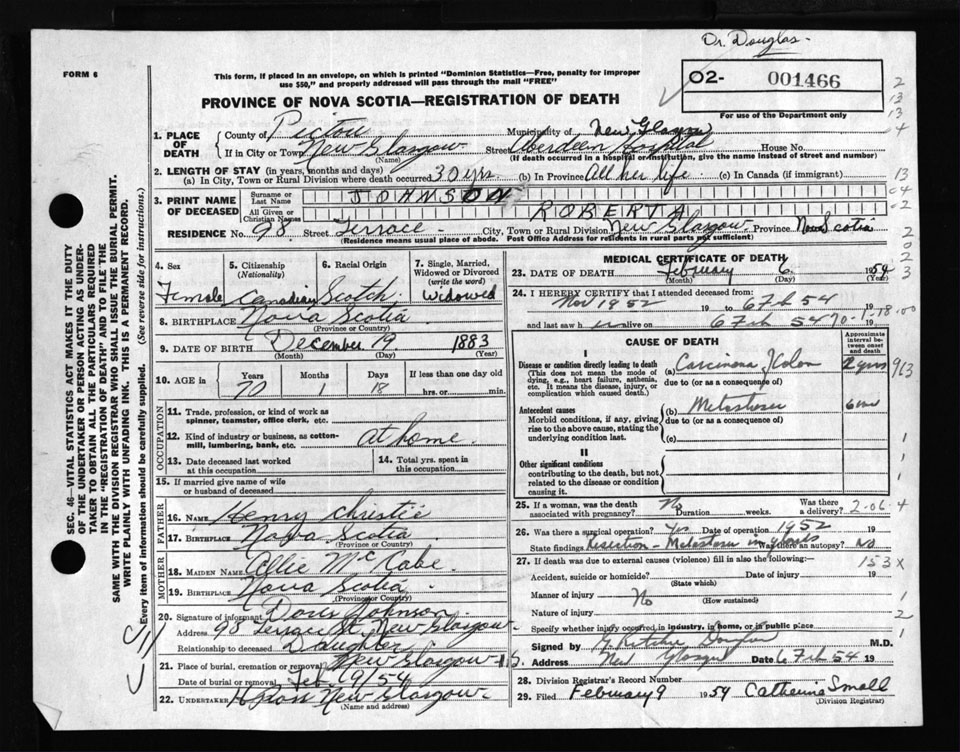 Dr. Douglas-
FORM 6
This form, if placed in an envelope, on which is printed "Dominion Statistics—Free, penalty for improper
use $50," and properly addressed will pass through the mail "FREE"
02- 001466
For use of the Department only
PROVINCE OF NOVA SCOTIA—REGISTRATION OF DEATH
1. PLACE OF DEATH County of Pictou Municipality of New Glasgow
If in City or Town New Glasgow (Name) Street Aberdeen Hospital House No.
(If death occurred in a hospital or institution, give the name instead of street and number)
2. LENGTH OF STAY (in years, months and days)
(a) In City, Town or Rural Division where death occurred 30 yrs (b) In Province All her life (c) In Canada (if immigrant)
3. PRINT NAME OF DECEASED Surname or Last Name JOHNSON
All Given or Christian Names ROBERTA
RESIDENCE No. 98 Street Terrace City, Town or Rural Division New Glasgow Province Nova Scotia
(Residence means usual place of abode. Post Office Address for residents in rural parts not sufficient)
4. Sex Female
5. Citizenship (Nationality) Canadian
6. Racial Origin Scotch
7. Single, Married, Widowed or Divorced (write the word) Widowed
8. BIRTHPLACE Nova Scotia
(Province or Country)
9. DATE OF BIRTH December 19 1883
(Month) (Day) (Year)
10. AGE in Years 70 Months 1 Days 18 If less than one day old hrs. or min.
OCCUPATION
11. Trade, profession, or kind of work as spinner, teamster, office clerk, etc.
12. Kind of industry or business, as cotton-mill, lumbering, bank, etc. at home
13. Date deceased last worked at this occupation
14. Total yrs. spent in this occupation
15. If married give name of wife or husband of deceased
FATHER
16. NAME Henry Christie
17. BIRTHPLACE Nova Scotia
(Province or Country)
MOTHER
18. MAIDEN NAME Allie McKabe
19. BIRTHPLACE Nova Scotia
(Province or Country)
20. Signature of informant Doris Johnson
Address 98 Terrace St. New Glasgow
Relationship to deceased Daughter
21. Place of burial, cremation or removal New Glasgow N.S.
Date of burial or removal Feb. 9/54
22. UNDERTAKER New Glasgow
(Name and address)
MEDICAL CERTIFICATE OF DEATH
23. DATE OF DEATH February 6 1954
(Month) (Day) (Year)
24. I HEREBY CERTIFY that I attended deceased from:
Nov 1952 19 to 6 Feb 54 19
and last saw h er alive on 6 Feb 54 19
70-1-18-00
CAUSE OF DEATH
Approximate interval between onset and death
I
Disease or condition directly leading to death
(This does not mean the mode of dying, e.g., heart failure, asthenia, etc. It means the disease, injury, or complication which caused death.)
(a) Carcinoma of Colon 2 yrs
due to (or as a consequence of)
Antecedent causes
Morbid conditions, if any, giving rise to the above cause, stating the underlying condition last.
(b) Metastases
due to (or as a consequence of)
(c)
II
Other significant conditions
contributing to the death, but not related to the disease or condition causing it.
25. If a woman, was the death associated with pregnancy? No Duration weeks. Was there a delivery?
2-06-4
26. Was there a surgical operation? Yes Date of operation 1952 19
State findings Resection - Metastases in glands Was there an autopsy? NO
27. If death was due to external causes (violence) fill in also the following:
153X
Accident, suicide or homicide? (State which) Date of injury 19
Manner of injury No (How sustained)
Nature of injury
Specify whether injury occurred in industry, in home, or in public place
Signed by G. Ritchie Douglas M.D.
Address New Glasgow Date 6 Feb 54 19
28. Division Registrar's Record Number
29. Filed February 9 1954 Catherine Small
(Division Registrar)
SEC. 46—VITAL STATISTICS ACT MAKES IT THE DUTY
OF THE UNDERTAKER OR PERSON ACTING AS UNDER-
TAKER TO OBTAIN ALL THE PARTICULARS REQUIRED
IN THE "REGISTRATION OF DEATH" AND TO FILE THE
SAME WITH THE DIVISION REGISTRAR WHO SHALL ISSUE THE BURIAL PERMIT.
WRITE PLAINLY WITH UNFADING INK. THIS IS A PERMANENT RECORD.
Every item of information should be carefully supplied. (See reverse side for instructions.)